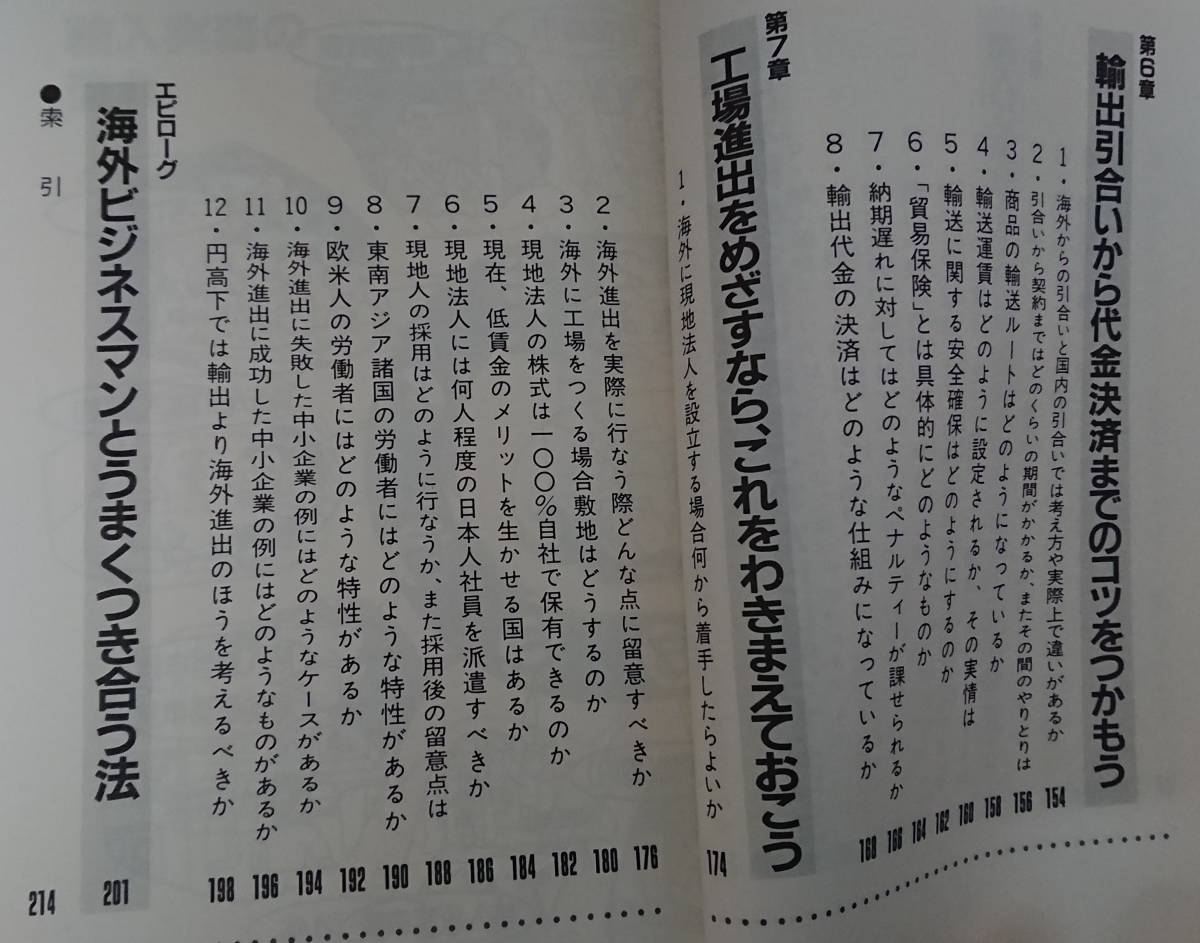 第6章
輸出引合いから代金決済までのコツをつかもう
1・海外からの引合いと国内の引合いでは考え方や実際上で違いがあるか 154
2・引合いから契約まではどのくらいの期間がかかるか、またその間のやりとりは 156
3・商品の輸送ルートはどのようになっているか 158
4・輸送運賃はどのように設定されるか、その実情は 160
5・輸送に関する安全確保はどのようにするのか 162
6・「貿易保険」とは具体的にどのようなものか 164
7・納期遅れに対してはどのようなペナルティーが課せられるか 166
8・輸出代金の決済はどのような仕組みになっているか 168
第7章
工場進出をめざすなら、これをわきまえておこう
1・海外に現地法人を設立する場合何から着手したらよいか 174
2・海外進出を実際に行なう際どんな点に留意すべきか 176
3・海外に工場をつくる場合敷地はどうするのか 180
4・現地法人の株式は一〇〇%自社で保有できるのか 182
5・現在、低賃金のメリットを生かせる国はあるか 184
6・現地法人には何人程度の日本人社員を派遣すべきか 186
7・現地人の採用はどのように行なうか、また採用後の留意点は 188
8・東南アジア諸国の労働者にはどのような特性があるか 190
9・欧米人の労働者にはどのような特性があるか 192
10・海外進出に失敗した中小企業の例にはどのようなケースがあるか 194
11・海外進出に成功した中小企業の例にはどのようなものがあるか 196
12・円高下では輸出より海外進出のほうを考えるべきか 198
エピローグ
海外ビジネスマンとうまくつき合う法 201
●索引 214